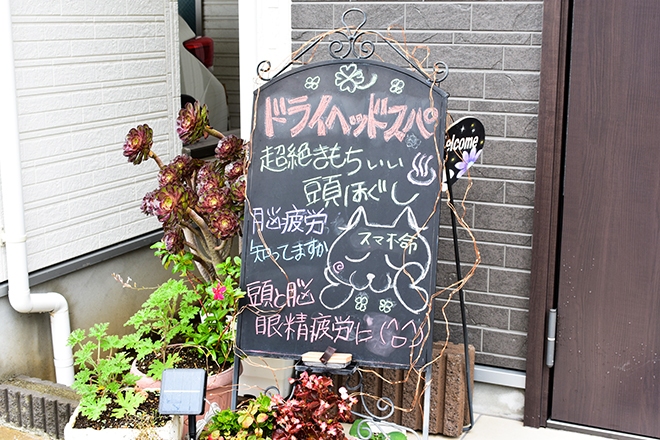 ドライヘッドスパ
超絶きもちいい
頭ほぐし
脳疲労
知ってますか
スマホ命
頭と脳
眼精疲労に(^^)
Welcome